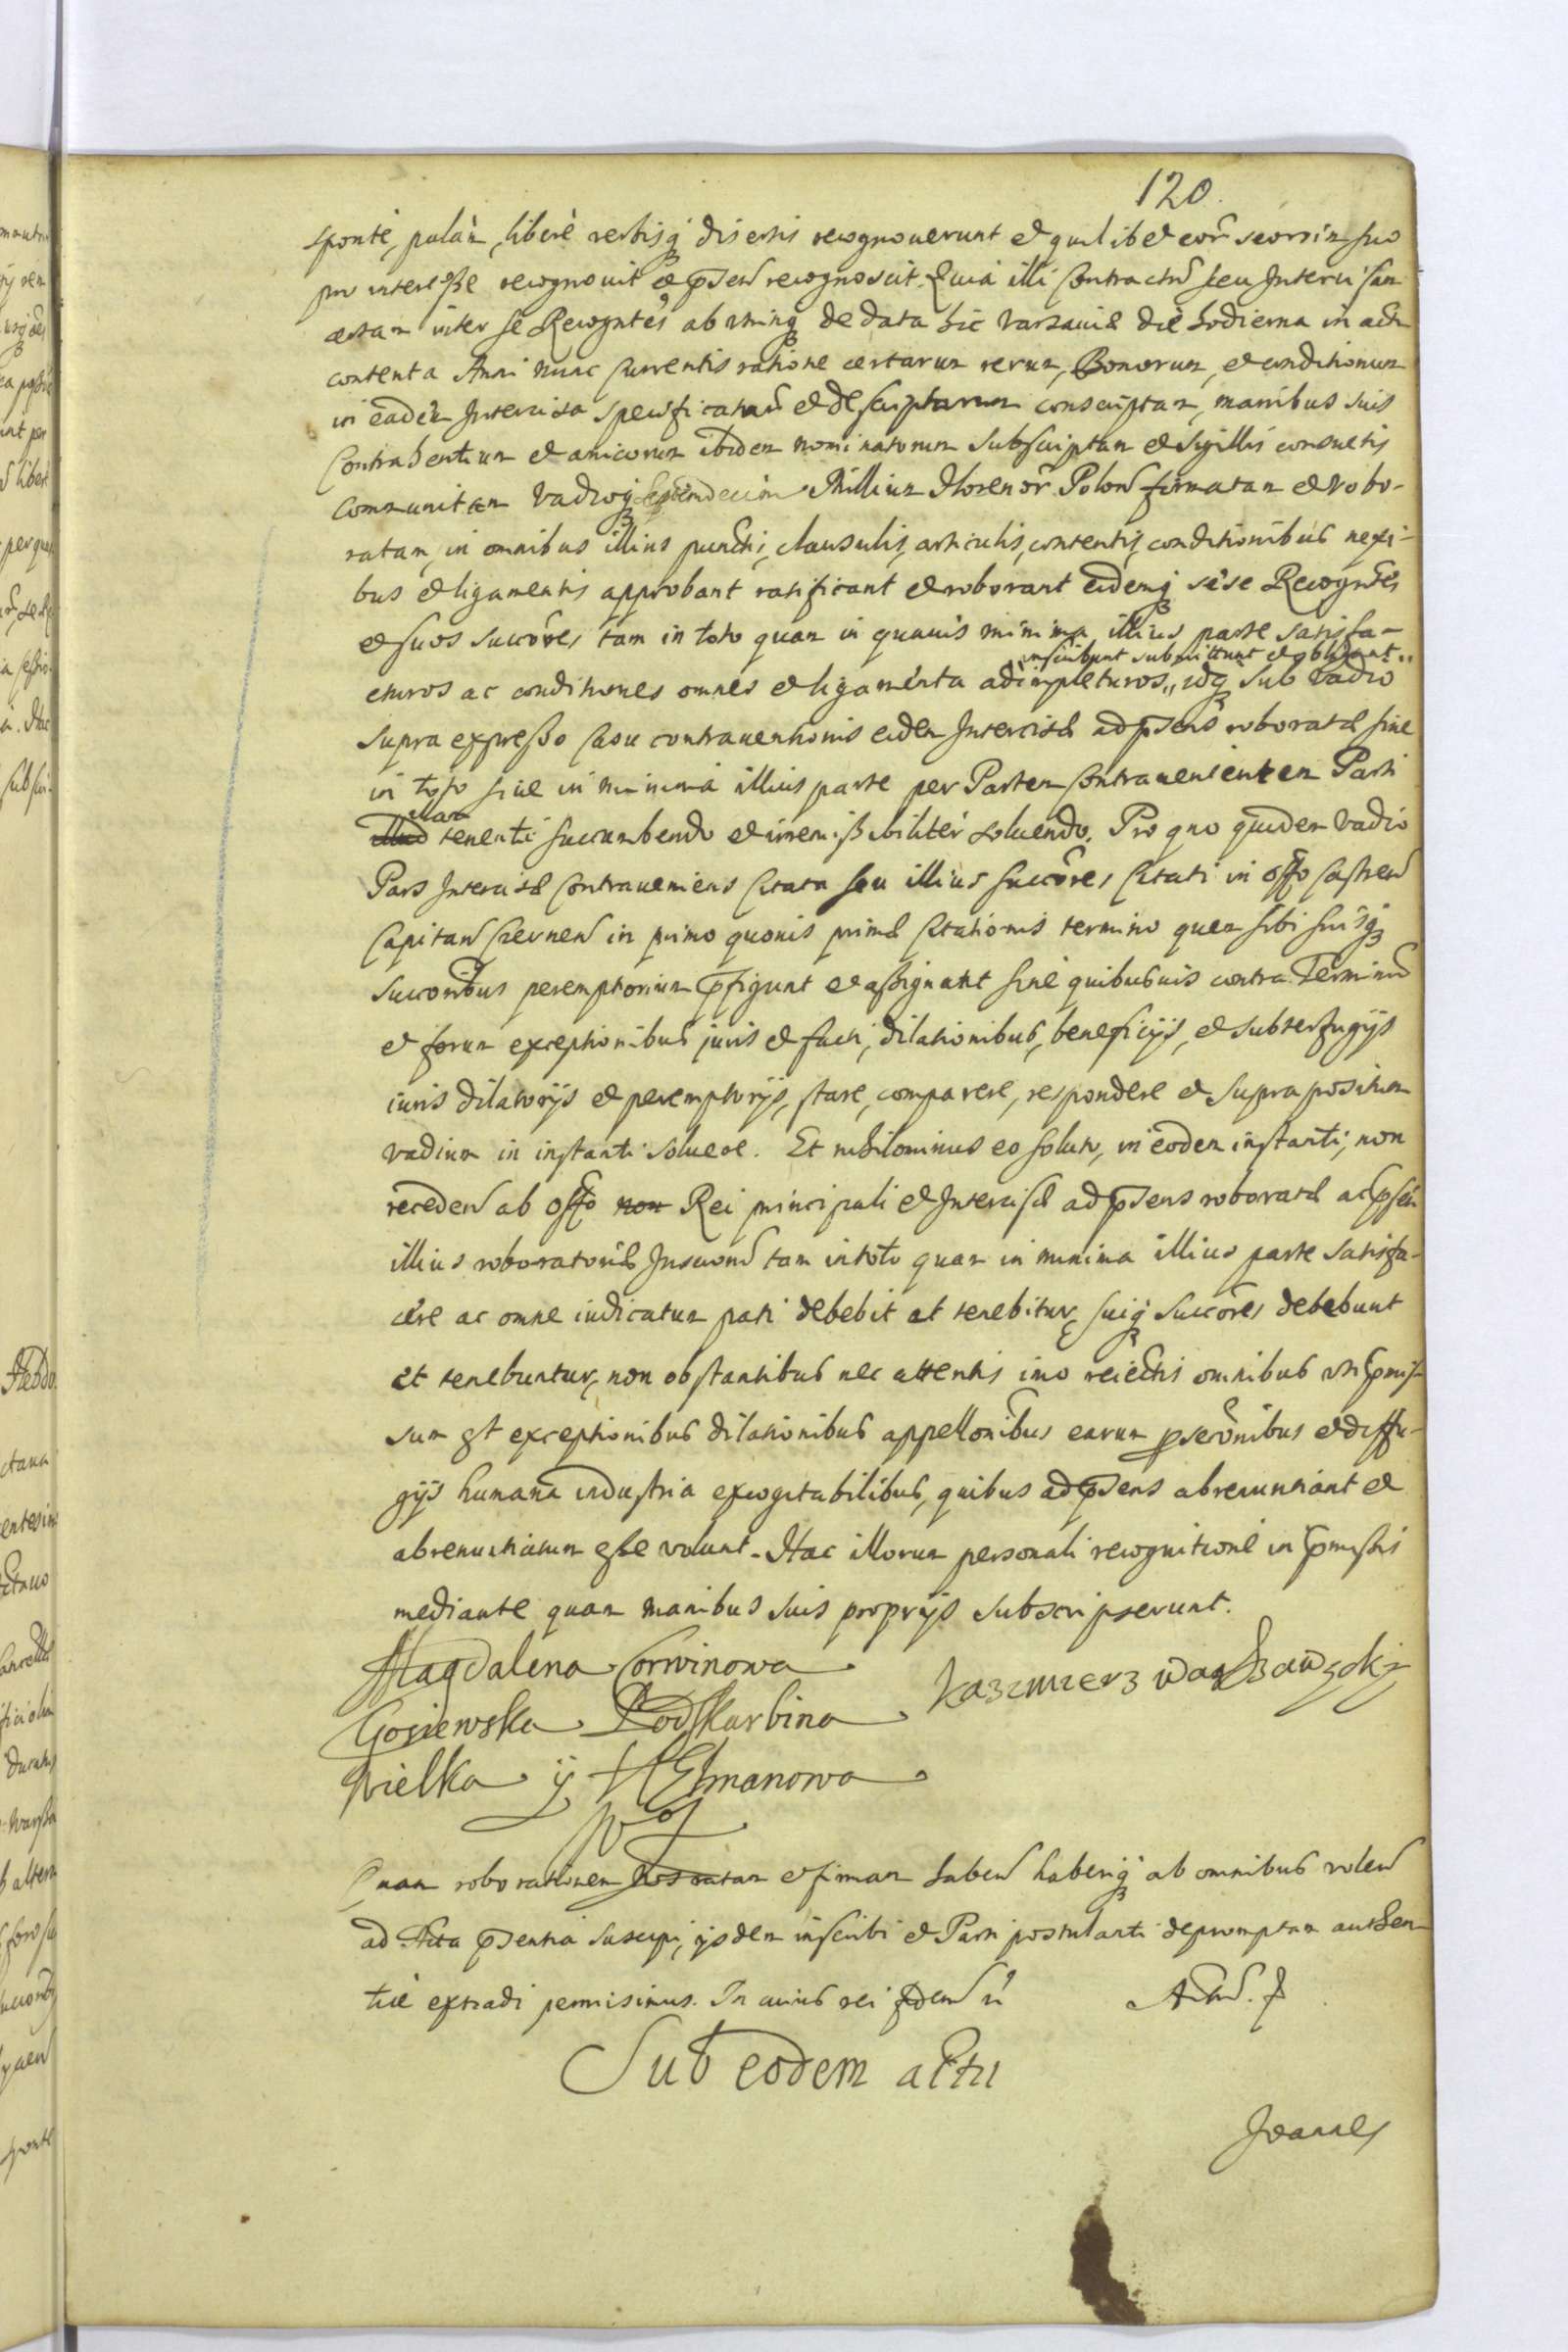 120.
sponte, palàm, liberè verbisq disertis recognouerunt et quilibet eor̃ seorsim suo
pro interesse recognouit et p̃sen̄ recognoscit. Quia illi Contractũ seu Intercisam
certam inter se Recogn̄tes ab utrinq de data hic Varsauiæ die hodierna in actu
contenta Anni nunc currentis ratione certarum rerum, Bonorum, et conditionum
in eadem Intercisa specificatarũ et descriptarum conscriptam, manibus suis
Contrahentium et amicorum ibidem nominatorum subscriptam et sigillis consuetis
communitam vadioq Septendecim Millium Florenor̃ Polon̄ firmatam et robo-
ratam, in omnibus illius punctis, clausulis, articulis, contentis, conditionibus nexi-
bus et ligamentis approbant ratificant et roborant eidemq sese Recogn̄tes
et suos succores tam in toto quam in quauis minima illius parte satisfa-
inscribunt submittunt et obligant"
cturos ac conditiones omnes et ligamenta adimpleturos" idq sub vadio
supra expresso casu contrauentionis eidem Intercisæ ad p̃sens roboratæ siue
in toto siue in minima illius parte per Partem Contrauenientem Parti
illam
tenenti succumbendo et irremissibiliter soluendo. Pro quo quidem vadio
Pars Intercisæ contraueniens Citata seu illius succores Citati in off̃o Castren̄
Capitan̄ Czernen̄ in primo quouis primæ Citationis termino quem sibi suisq
succoribus peremptorium p̃figunt et assignant sine quibusuis contra Terminũ
et forum exceptionibus juris et facti, dilationibus, beneficijs, et subterfugijs
iuris dilatorijs et peremptorijs, stare, comparere, respondere et supra positum
vadium in instanti soluere. Et nihilominus eo soluto, in eodem instanti, non
receden̄ ab off̃o non Rei principali et Intercisæ ad p̃sens roboratæ ac p̃sen̄
illius roboratoriæ Inscrioni tam in toto quam in minima illius parte satisfa-
cere ac omne iudicatum pati debebit et tenebitur, suiq succores debebunt
et tenebuntur, non obstantibus nec attentis imo reiectis omnibus uti p̃mis-
sum est exceptionibus dilationibus appellonibus earum p̱seconibus et diffu-
gijs humana industria excogitabilibus, quibus ad p̃sens abrenuntiant et
abrenuntiatum esse volunt. Hac illorum personali recognitione in p̃missis
mediante quam manibus suis proprijs subscripserunt.
Magdalena Corwinowa
Gosiewska Podskarbina
Wielka ÿ HEtmanowa
Kazimierz Warszawski
Quam roborationem et firmam haben̄ haberiq ab omnibus volen̄
ad Acta p̃sentia suscipi, ijsdem inscribi et Parti postulanti depromptam authen-
tice extradi permisimus. In cuius rei fidem
Sub eodem actu
Joannes